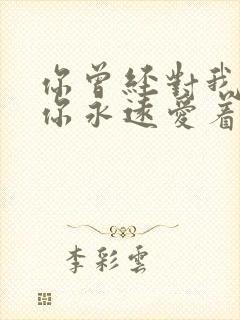 你曾經對我
你永遠愛着
李彩雲